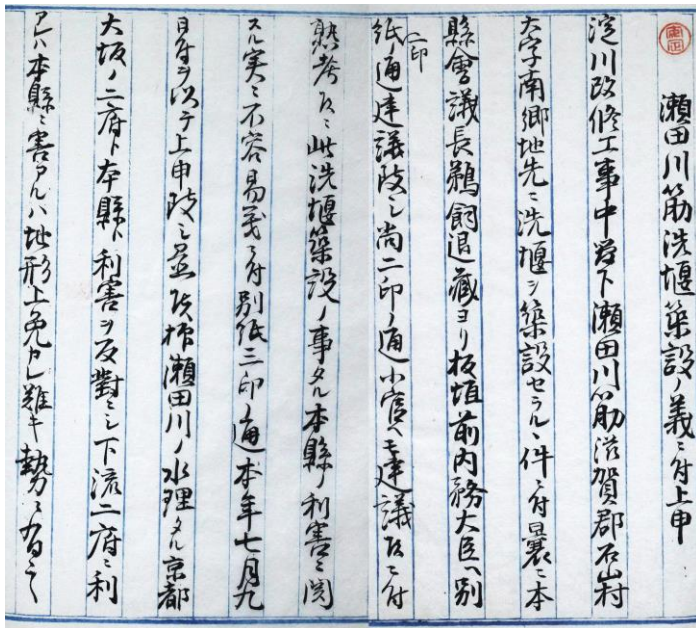 瀬田川筋洗堰築設ノ義ニ付上申
淀川改修工事中貴下瀬田川筋滋賀郡石山村
大字南郷地先ニ洗堰ヲ築設セラルヽ件ニ付曩ニ本
縣會議長鵜飼退藏ヨリ板垣前内務大臣ヘ別
紙一印ノ通建議致シ尚二印ノ通小官ヘモ建議致候ニ付
熟考候ニ此洗堰築設ノ事タル本縣ノ利害ニ関
スル実ニ不容易義ニ付別紙三印ノ通本年七月九
日付ヲ以テ上申致シ置候抑瀬田川ノ水理タル京都
大坂ノ二府ト本縣ト利害ヲ反對ニシ下流二府ニ利
アレハ本縣ニ害アルハ地形上免カレ難キ勢ニ有之